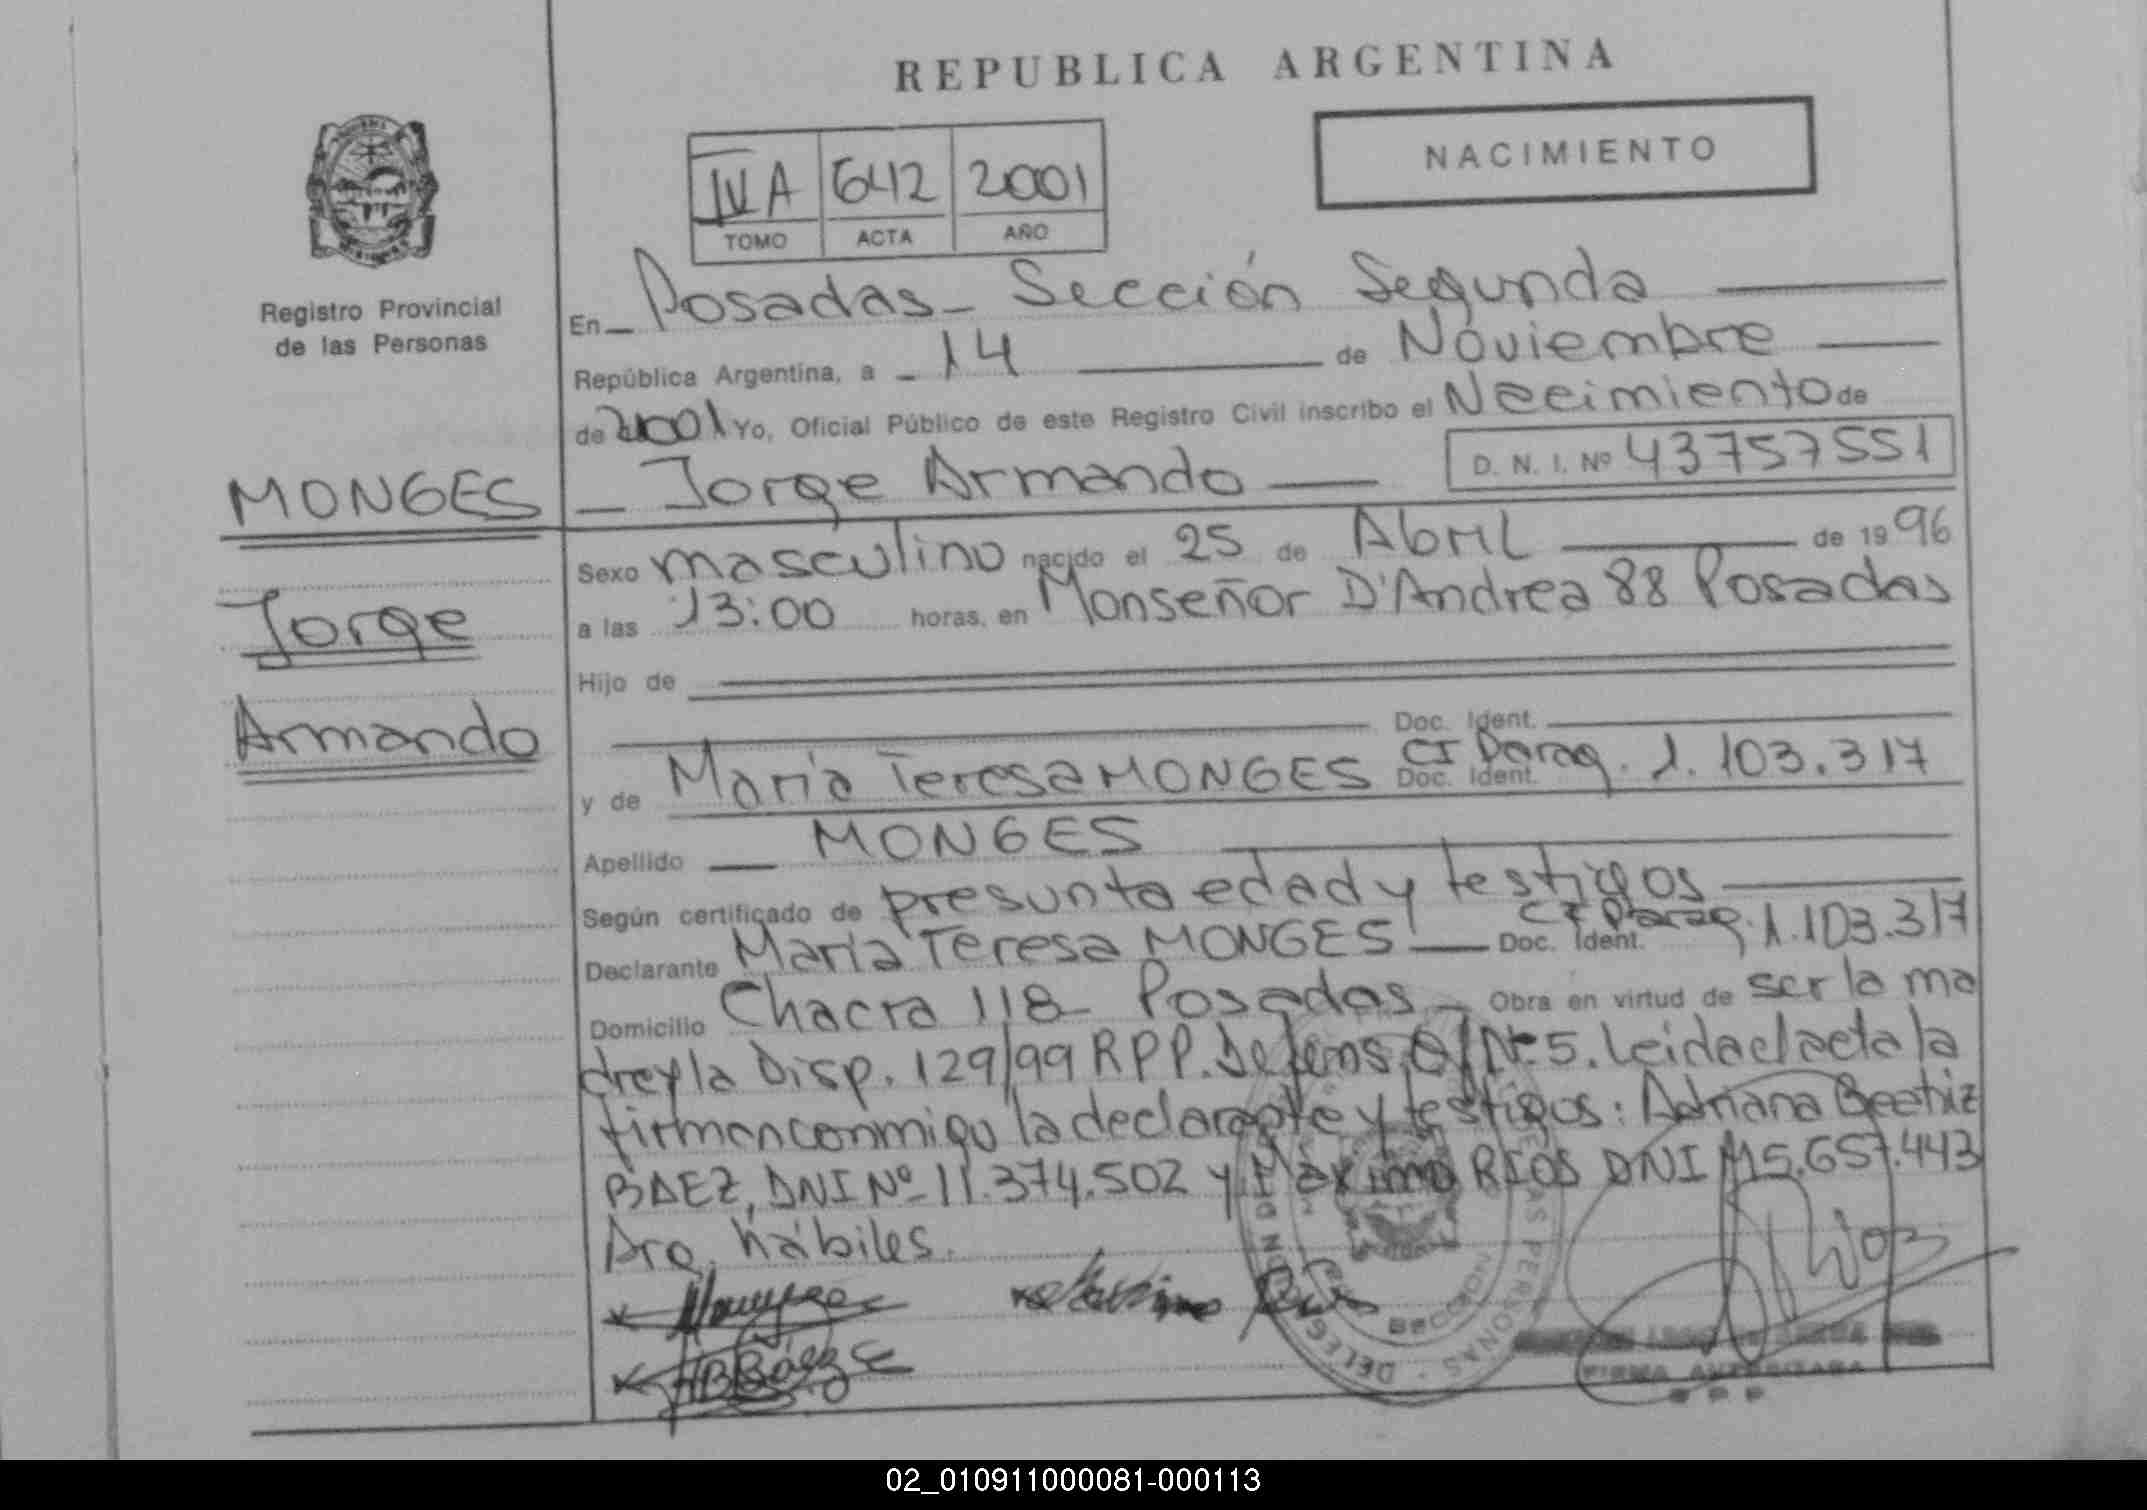 REPUBLICA ARGENTINA
NACIMIENTO
IV A 642 2001
TOMO ACTA AÑO
Registro Provincial
de las Personas
En Posadas - Sección Segunda
República Argentina, a 14 de Noviembre
de 2001 Yo, Oficial Público de este Registro Civil inscribo el Nacimiento de
Jorge Armando D. N. I. Nº 43757551
MONGES
Jorge
Armando
Sexo masculino nacido el 25 de Abril de 1996
a las 13:00 horas, en Monseñor D'Andrea 88 Posadas
Hijo de
Doc. Ident.
y de María Teresa MONGES Doc. Ident. CI Parag. 1.103.317
Apellido MONGES
Según certificado de presunta edad y testigos
Declarante María Teresa MONGES Doc. Ident. CI Parag. 1.103.317
Domicilio Chacra 118 - Posadas - Obra en virtud de ser la ma
dre y la Disp. 129/99 RPP. Defens. Of Nº 5. Leida el acta la
firman conmigo la declarante y testigos: Adriana Beatriz
BAEZ, DNI Nº 11.374.502 y Máximo RIOS DNI 15.657.443
Arg. hábiles.
DELEG
AS PERSONAS
FIRMA AUTORIZADA
02_010911000081-000113